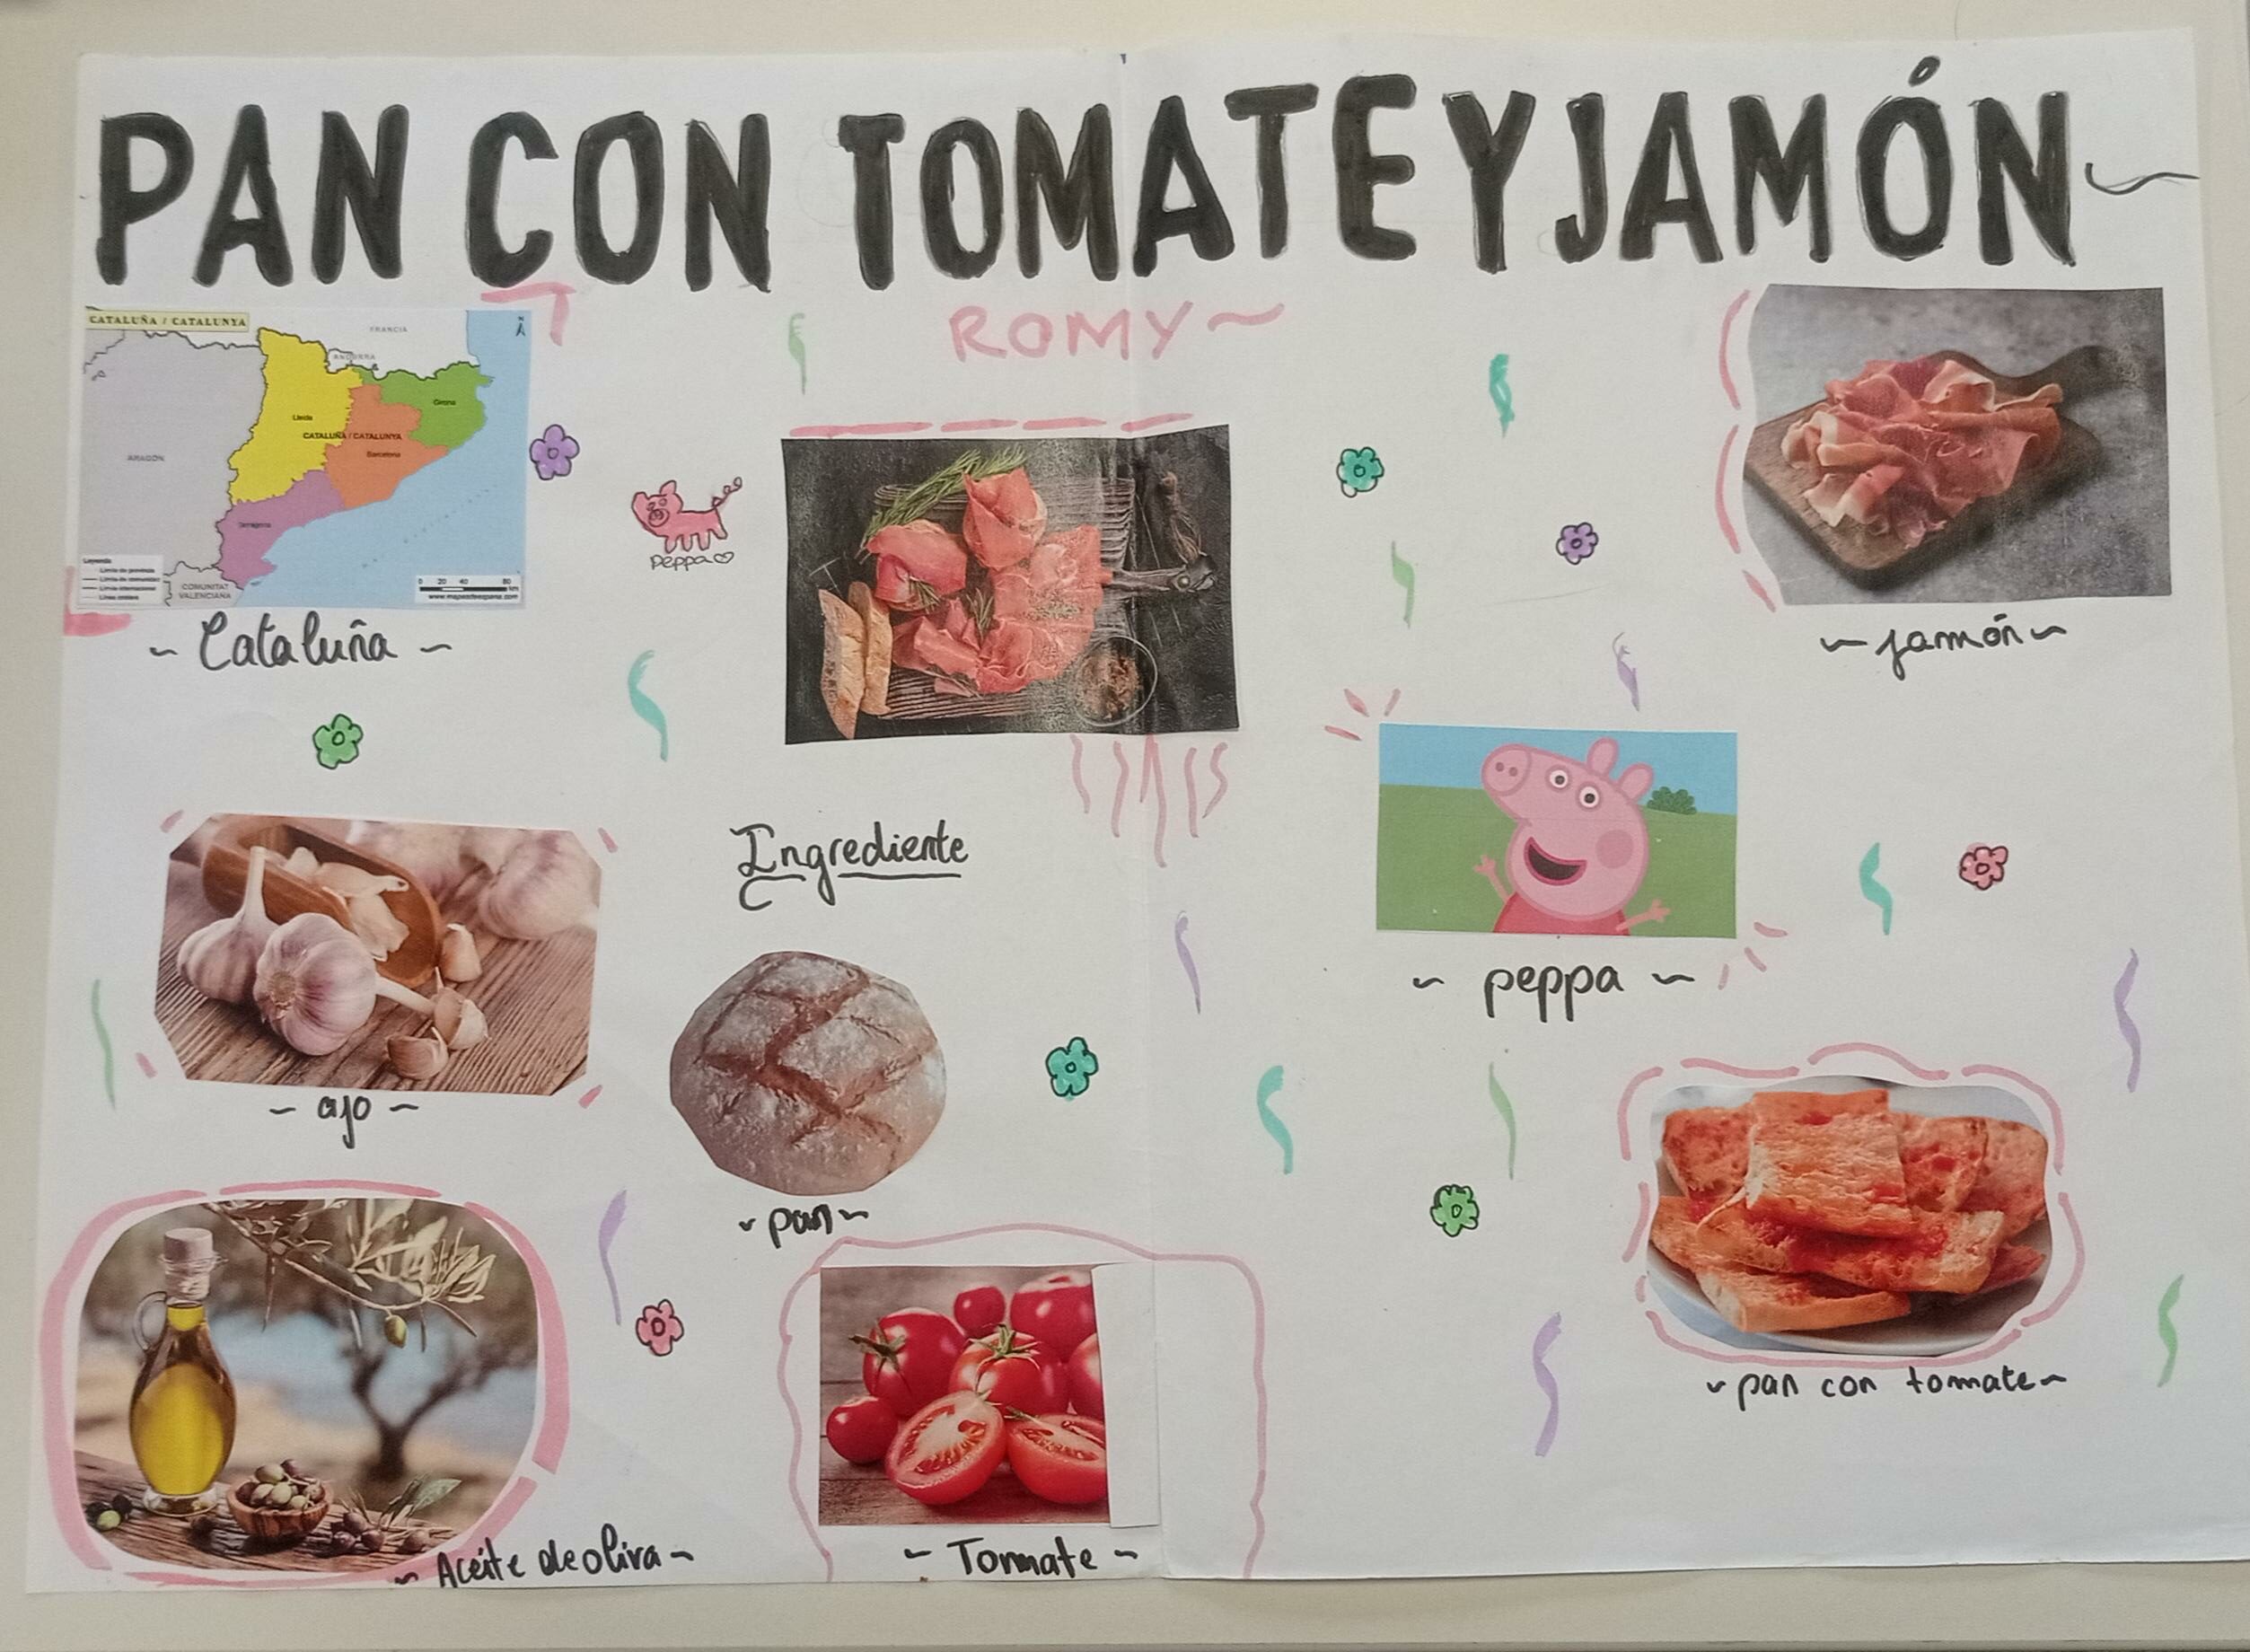 PAN CON TOMATE Y JAMÓN
ROMY
CATALUÑA / CATALUNYA
FRANCIA
ANDORRA
Lleida
Girona
CATALUÑA / CATALUNYA
Barcelona
ARAGÓN
Tarragona
Leyenda
Límite de provincia
COMUNITAT
VALENCIANA
0 20 40 80
km
www.mapasdeespana.com
~ Cataluña ~
peppa
~ jamón ~
Ingrediente
~ peppa ~
~ ajo ~
~ pan ~
~ pan con tomate ~
~ Aceite de oliva ~
~ Tomate ~